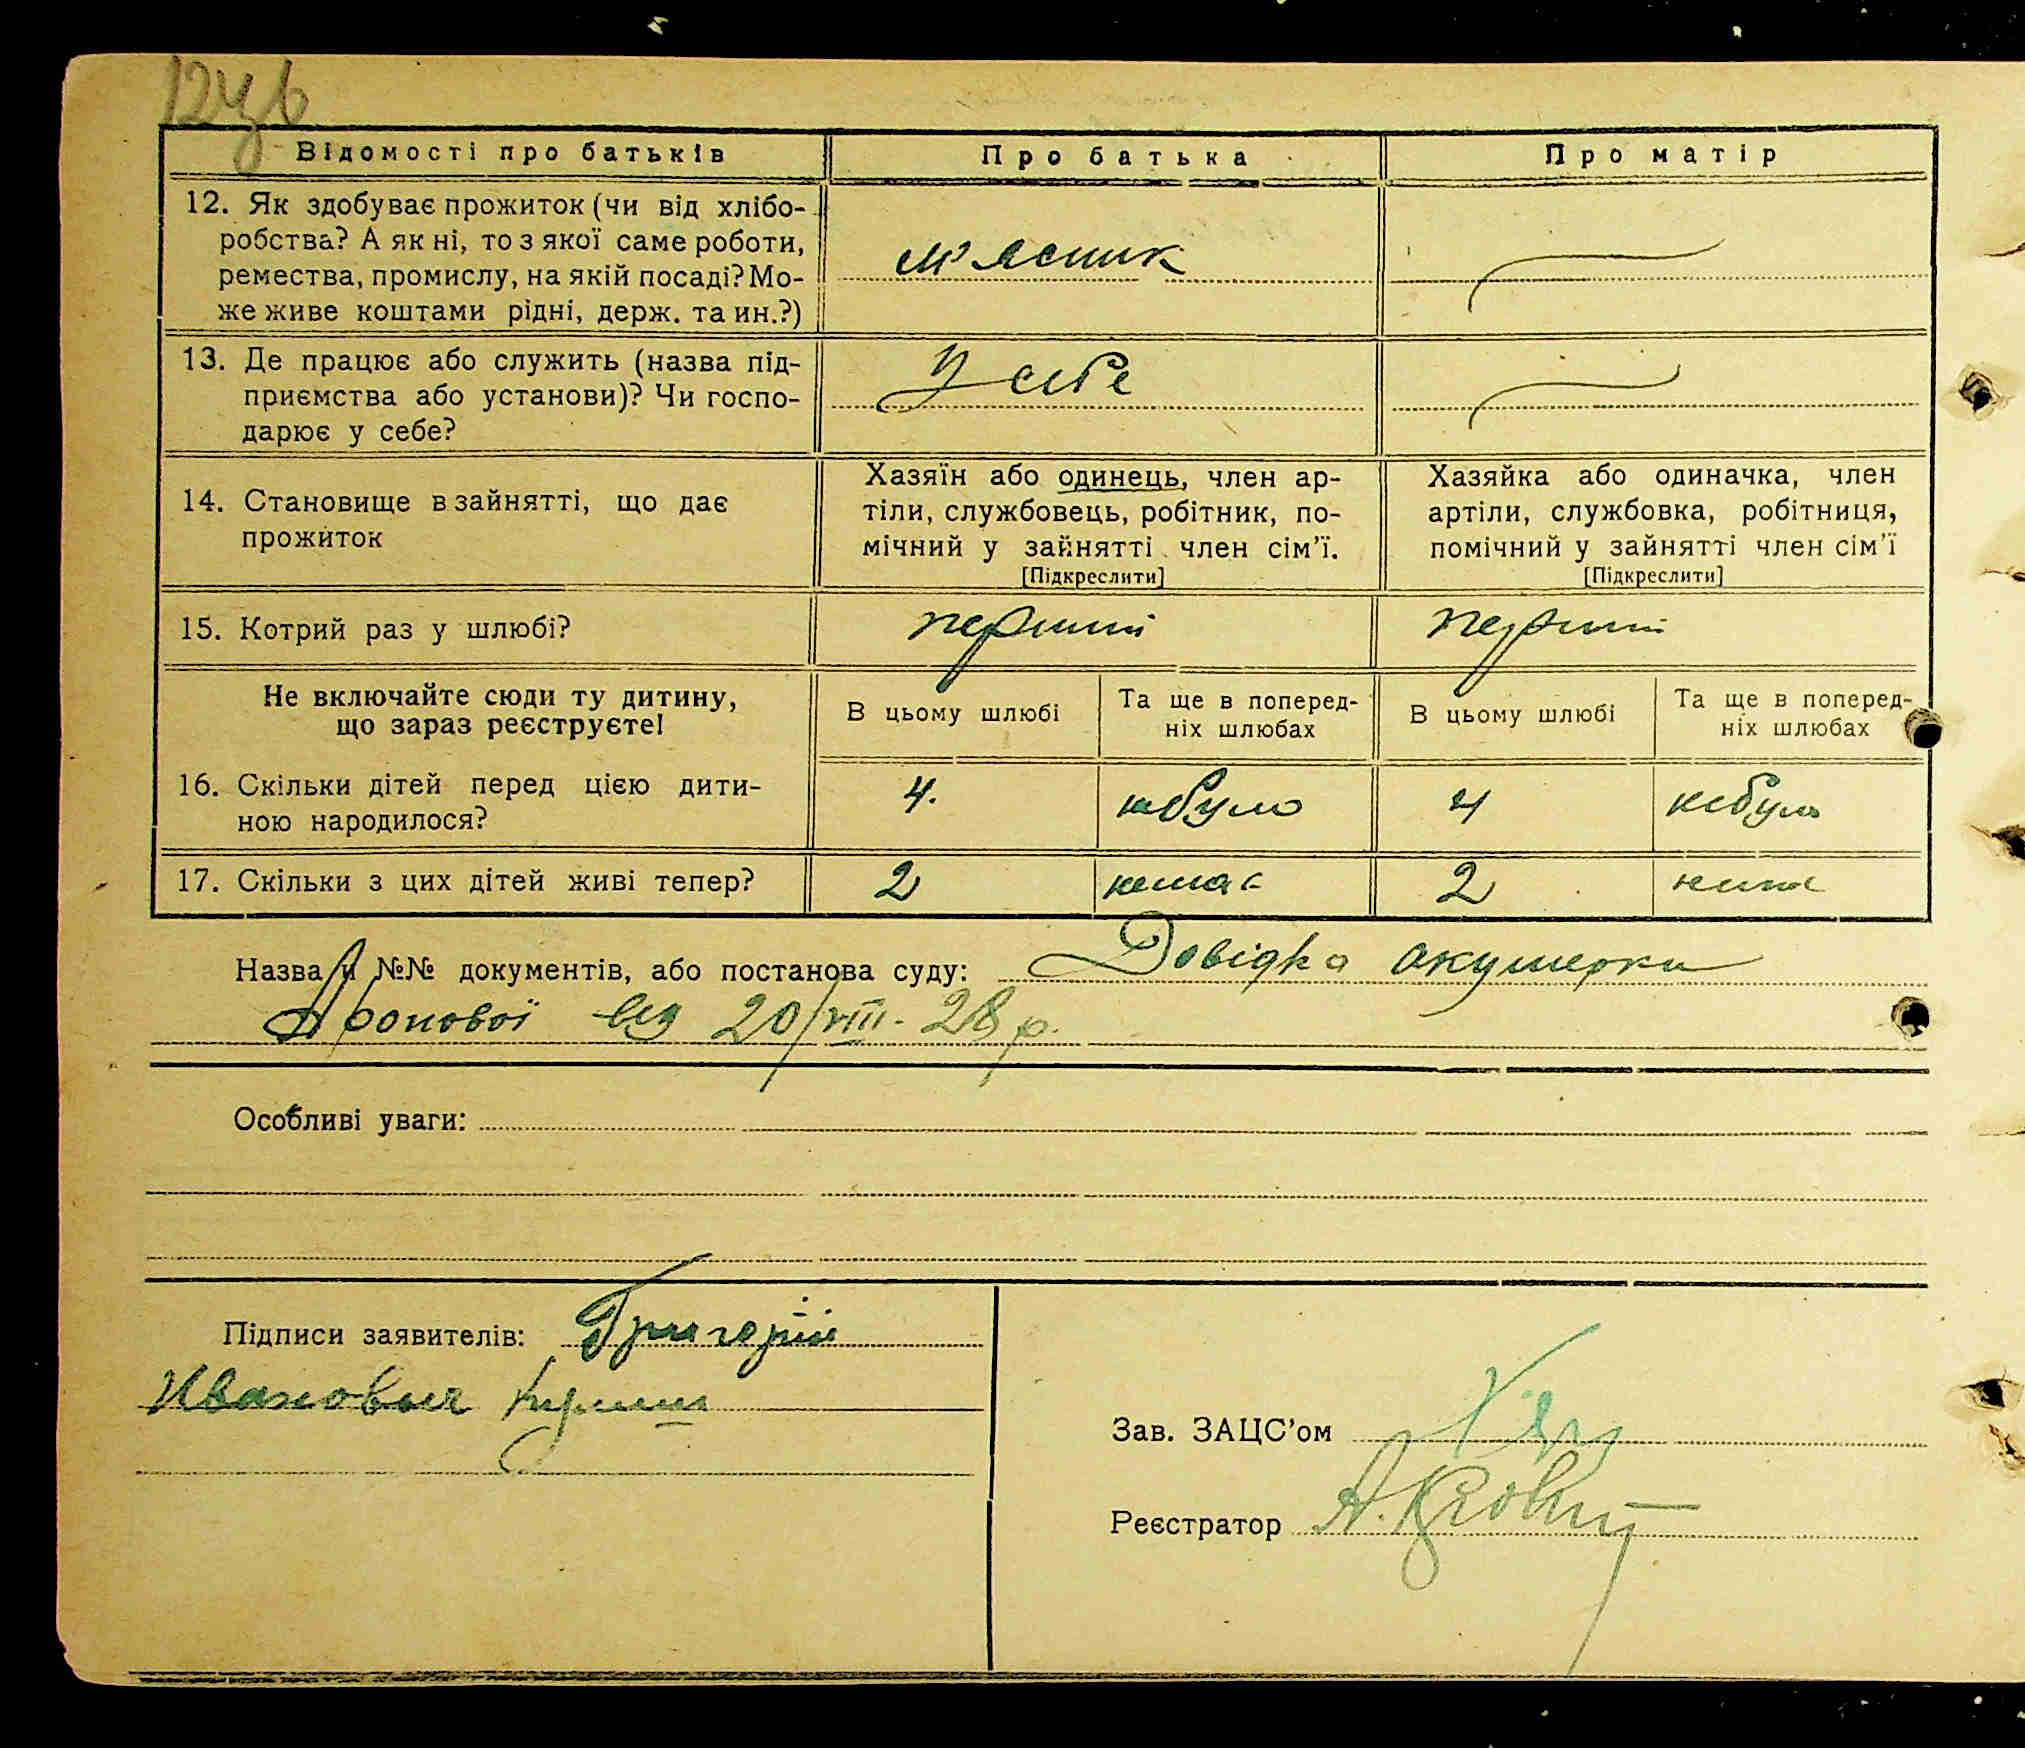 Відомості про батьків
Про батька
Про матір
12. Як здобуває прожиток (чи від хлібо-
робства? А як ні, то з якої саме роботи,
ремества, промислу, на якій посаді? Мо-
же живе коштами рідні, держ. та ин.?)
м'ясник
13. Де працює або служить (назва під-
приємства або установи)? Чи госпо-
дарює у себе?
У себе
14. Становище в зайнятті, що дає
прожиток
Хазяїн або одинець, член ар-
тіли, службовець, робітник, по-
мічний у зайнятті член сім'ї.
[Підкреслити]
Хазяйка або одиначка, член
артіли, службовка, робітниця,
помічний у зайнятті член сім'ї
[Підкреслити]
15. Котрий раз у шлюбі?
перший
перший
Не включайте сюди ту дитину,
що зараз реєструєте!
В цьому шлюбі
Та ще в поперед-
ніх шлюбах
В цьому шлюбі
Та ще в поперед-
ніх шлюбах
16. Скільки дітей перед цією дити-
ною народилося?
4.
небуло
4
небуло
17. Скільки з цих дітей живі тепер?
2
немає
2
нема
Назва й №№ документів, або постанова суду: Довідка акушерки
Аронової від 20/VIII-28 р.
Особливі уваги:
Підписи заявителів: Григорій
Ивановыч
Зав. ЗАЦС'ом
Реєстратор А.